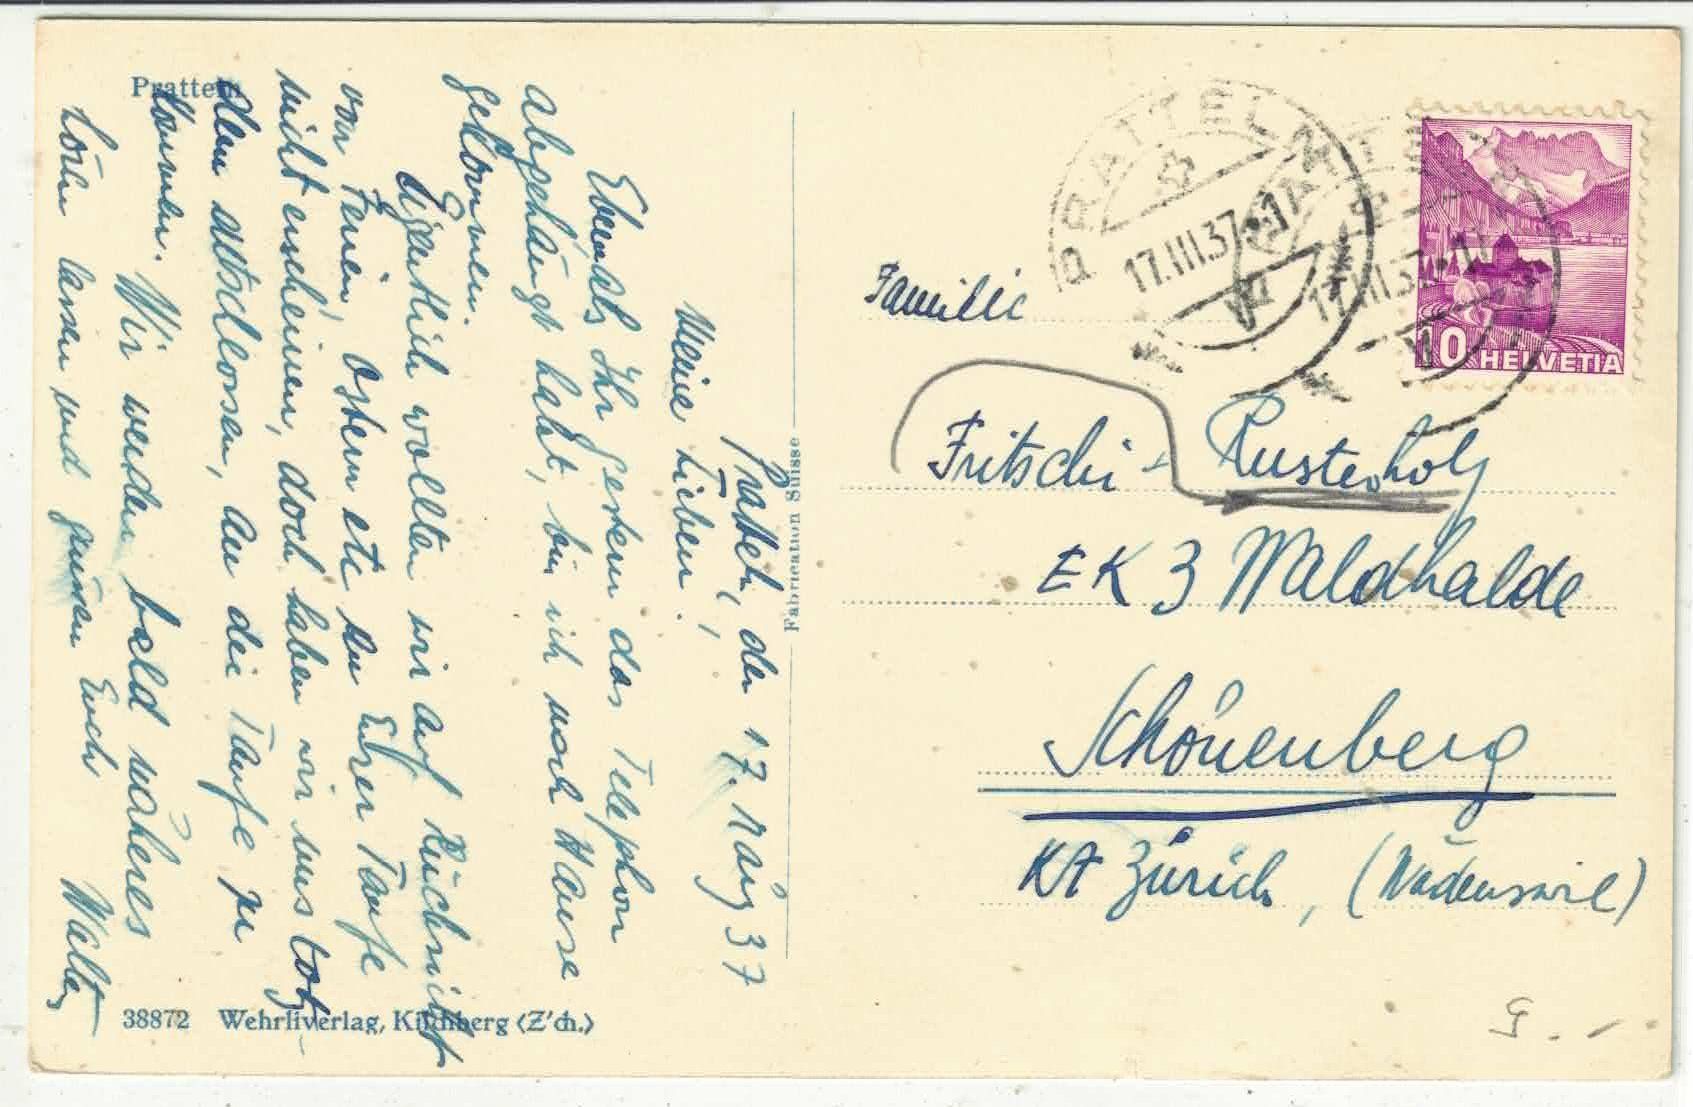 Pratteln
Pratteln, den 17. März 37
Meine Lieben!
Eben als Ihr gestern das Telephon
abgehängt habt, bin ich nach Hause
gekommen.
Eigentlich wollten wir auf Rücksicht
von Ferien, Ostern etc zu Eurer Taufe
nicht erscheinen, doch haben wir uns trotz-
dem entschlossen, an die Taufe zu
kommen. Wir werden bald näheres
hören lassen und grüssen Euch Walter
38872 Wehrliverlag, Kilchberg (Z'ch.)
Fabrication Suisse
PRATTELN
17.III.37
PRATTELN
17.III.37
10 HELVETIA
Familie
Fritschi - Rusterholz
EK 3 Waldhalde
Schönenberg
Kt Zürich, (Wädenswil)
G. -